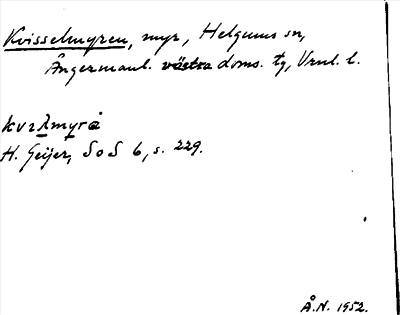 Kvisselmyren, myr, Helgums sn,
Ångermanl. västra doms. tg, Vrnl. l.
kvɪλmyra
H. Geijer, SoS 6, s. 229.
Å.N. 1952.